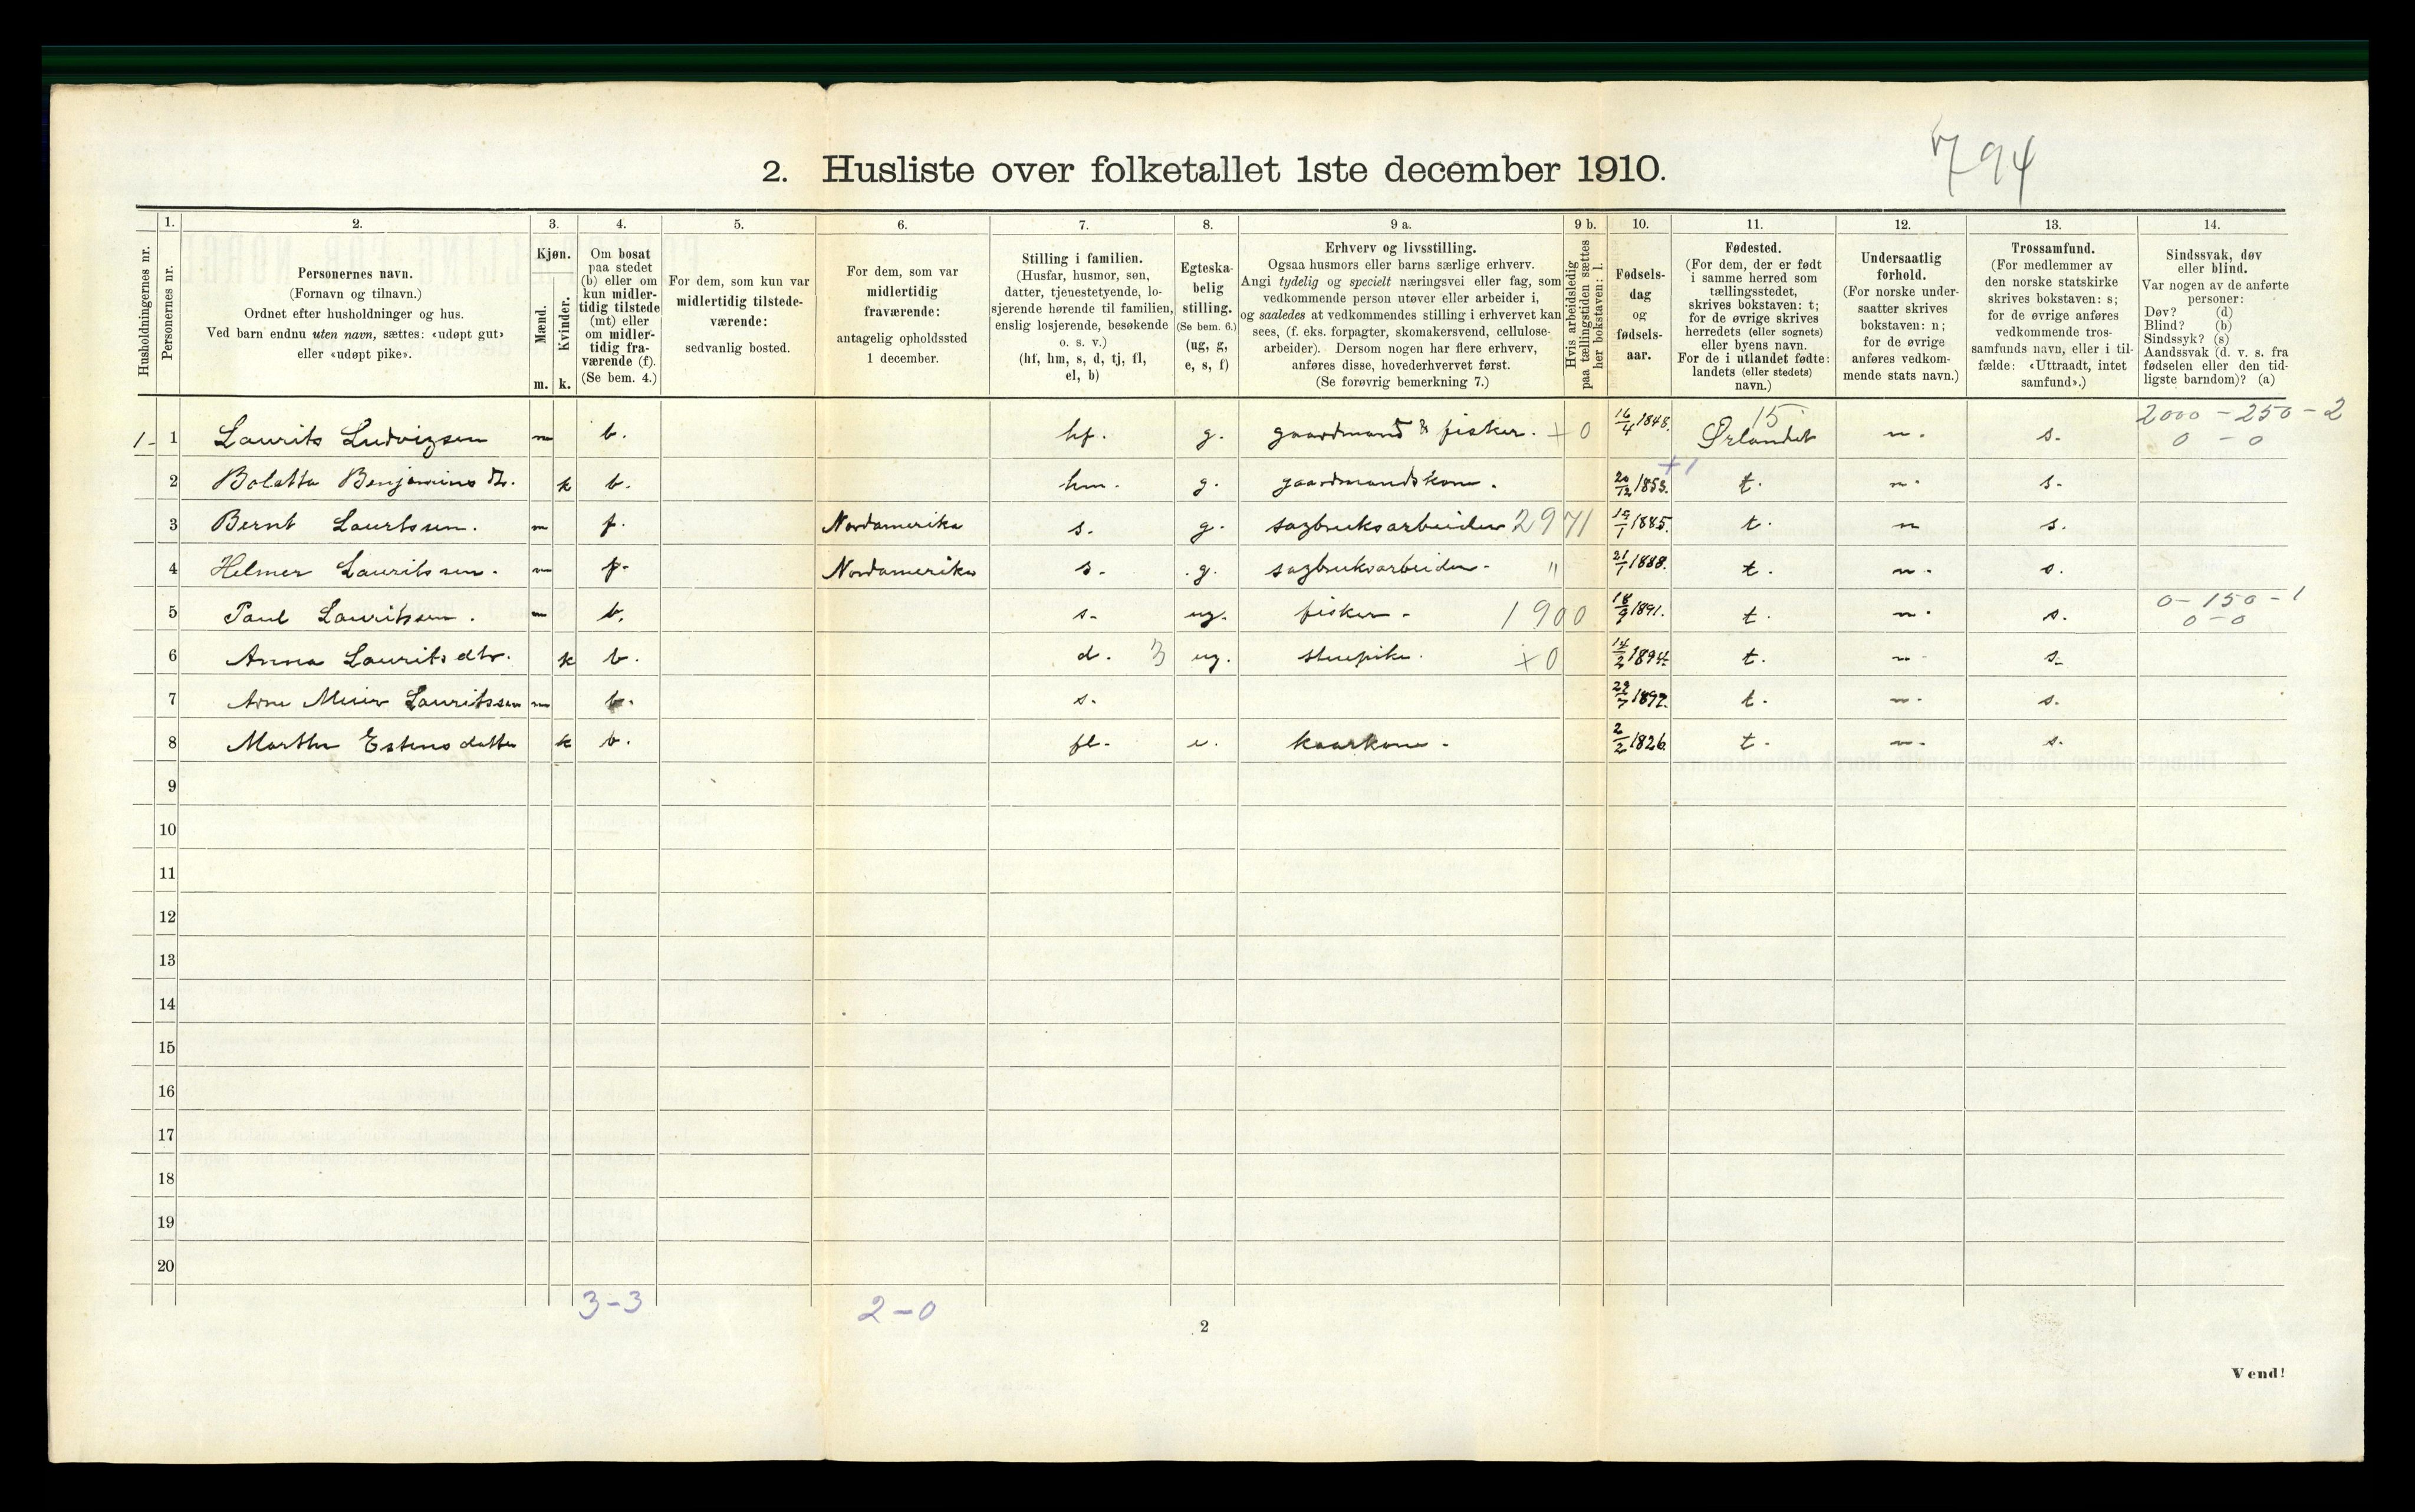 794
2. Husliste over folketallet 1ste december 1910.
1. 2. 3. 4. 5. 6. 7. 8. 9 a. 9 b. 10. 11. 12. 13. 14.
Husholdningernes nr.
Personernes nr.
Personernes navn.
(Fornavn og tilnavn.)
Ordnet efter husholdninger og hus.
Ved barn endnu uten navn, sættes: «udøpt gut»
eller «udøpt pike».
Kjøn.
Mænd.
Kvinder.
m. k.
Om bosat
paa stedet
(b) eller om
kun midler-
tidig tilstede
(mt) eller
om midler-
tidig fra-
værende (f).
(Se bem. 4.)
For dem, som kun var
midlertidig tilstede-
værende:
sedvanlig bosted.
For dem, som var
midlertidig
fraværende:
antagelig opholdssted
1 december.
Stilling i familien.
(Husfar, husmor, søn,
datter, tjenestetyende, lo-
sjerende hørende til familien,
enslig losjerende, besøkende
o. s. v.)
(hf, hm, s, d, tj, fl,
el, b)
Egteska-
belig
stilling.
(Se bem. 6.)
(ug, g,
e, s, f)
Erhverv og livsstilling.
Ogsaa husmors eller barns særlige erhverv.
Angi tydelig og specielt næringsvei eller fag, som
vedkommende person utøver eller arbeider i,
og saaledes at vedkommendes stilling i erhvervet kan
sees, (f. eks. forpagter, skomakersvend, cellulose-
arbeider). Dersom nogen har flere erhverv,
anføres disse, hovederhvervet først.
(Se forøvrig bemerkning 7.)
Hvis arbeidsledig
paa tællingstiden sættes
her bokstaven: l.
Fødsels-
dag
og
fødsels-
aar.
Fødested.
(For dem, der er født
i samme herred som
tællingsstedet,
skrives bokstaven: t;
for de øvrige skrives
herredets (eller sognets)
eller byens navn.
For de i utlandet fødte:
landets (eller stedets)
navn.)
Undersaatlig
forhold.
(For norske under-
saatter skrives
bokstaven: n;
for de øvrige
anføres vedkom-
mende stats navn.)
Trossamfund.
(For medlemmer av
den norske statskirke
skrives bokstaven: s;
for de øvrige anføres
vedkommende tros-
samfunds navn, eller i til-
fælde: «Uttraadt, intet
samfund».)
Sindssvak, døv
eller blind.
Var nogen av de anførte
personer:
Døv? (d)
Blind? (b)
Sindssyk? (s)
Aandssvak (d. v. s. fra
fødselen eller den tid-
ligste barndom)? (a)
15 2000 - 250 - 2
1- 1 Laurits Ludvigsen m b. hf. g. gaardmand & fisker. +0 16/4 1848. Ørlandet n. s. 0 - 0
+1
2 Boletta Benjamins Dtr. k b. hm. g. gaardmandskone. 20/12 1853. t. n. s.
3 Bernt Lauritssen. m f. Nordamerika s. g. sagbruksarbeider 2971 19/1 1885. t. n s.
4 Helmer Lauritssen. m f. Nordamerika s. g. sagbruksarbeider - " 21/1 1888. t. n. s.
0 - 150 - 1
5 Paul Lauritssen. m b. s. ug. fisker - 1900 18/9 1891. t. n. s. 0 - 0
6 Anna Laurits dtr. k b. d. 3 ug. stuepike. +0 14/2 1894. t. n. s.
7 Arne Meier Lauritssen m b. s. 22/7 1897. t. n. s.
8 Martha Estensdatter k b. fl. e. kaarkone - 2/2 1826. t. n. s.
9
10
11
12
13
14
15
16
17
18
19
20
3-3 2-0
2
Vend!